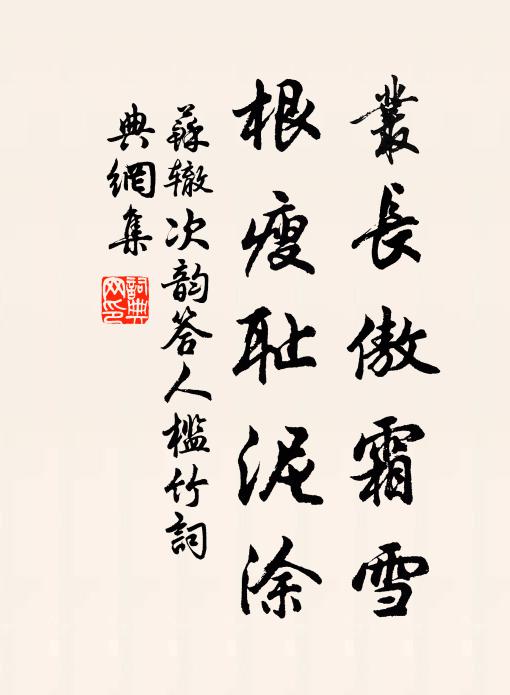 叢長傲霜雪
根瘦恥泥涂
蘇轍次韵答人檻竹詞
典網集
詞典网印